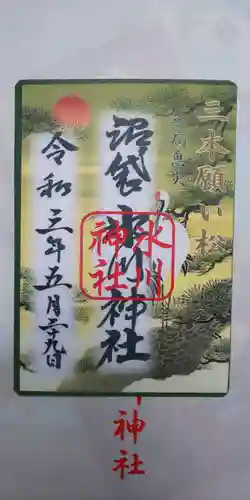 三本願い松
沼袋氷川神社
氷川
神社
令和三年五月二十九日
神社